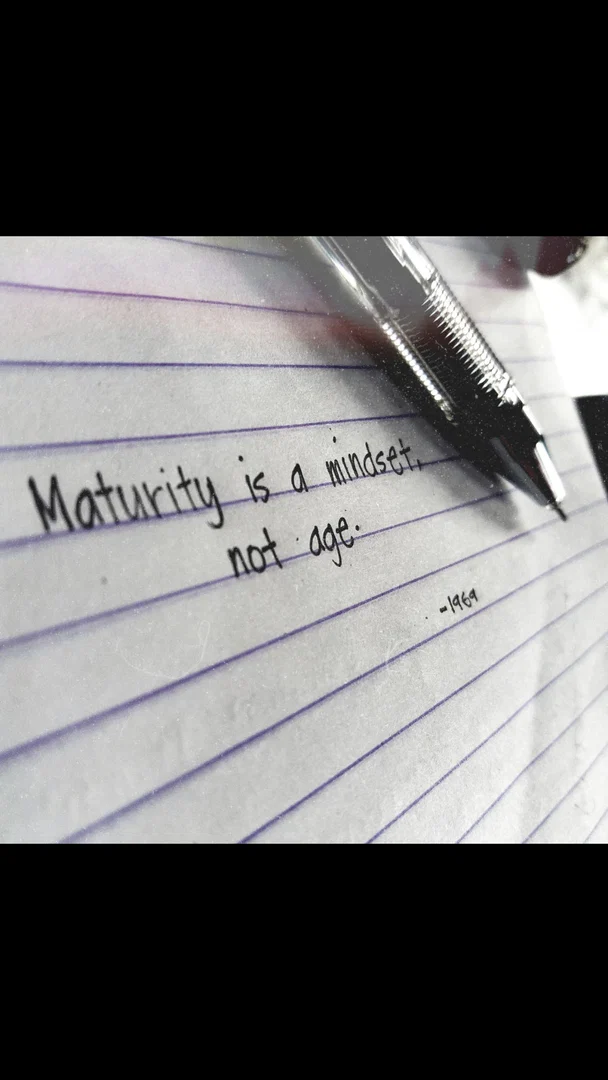 Maturity is a mindset,
not age.
-1969